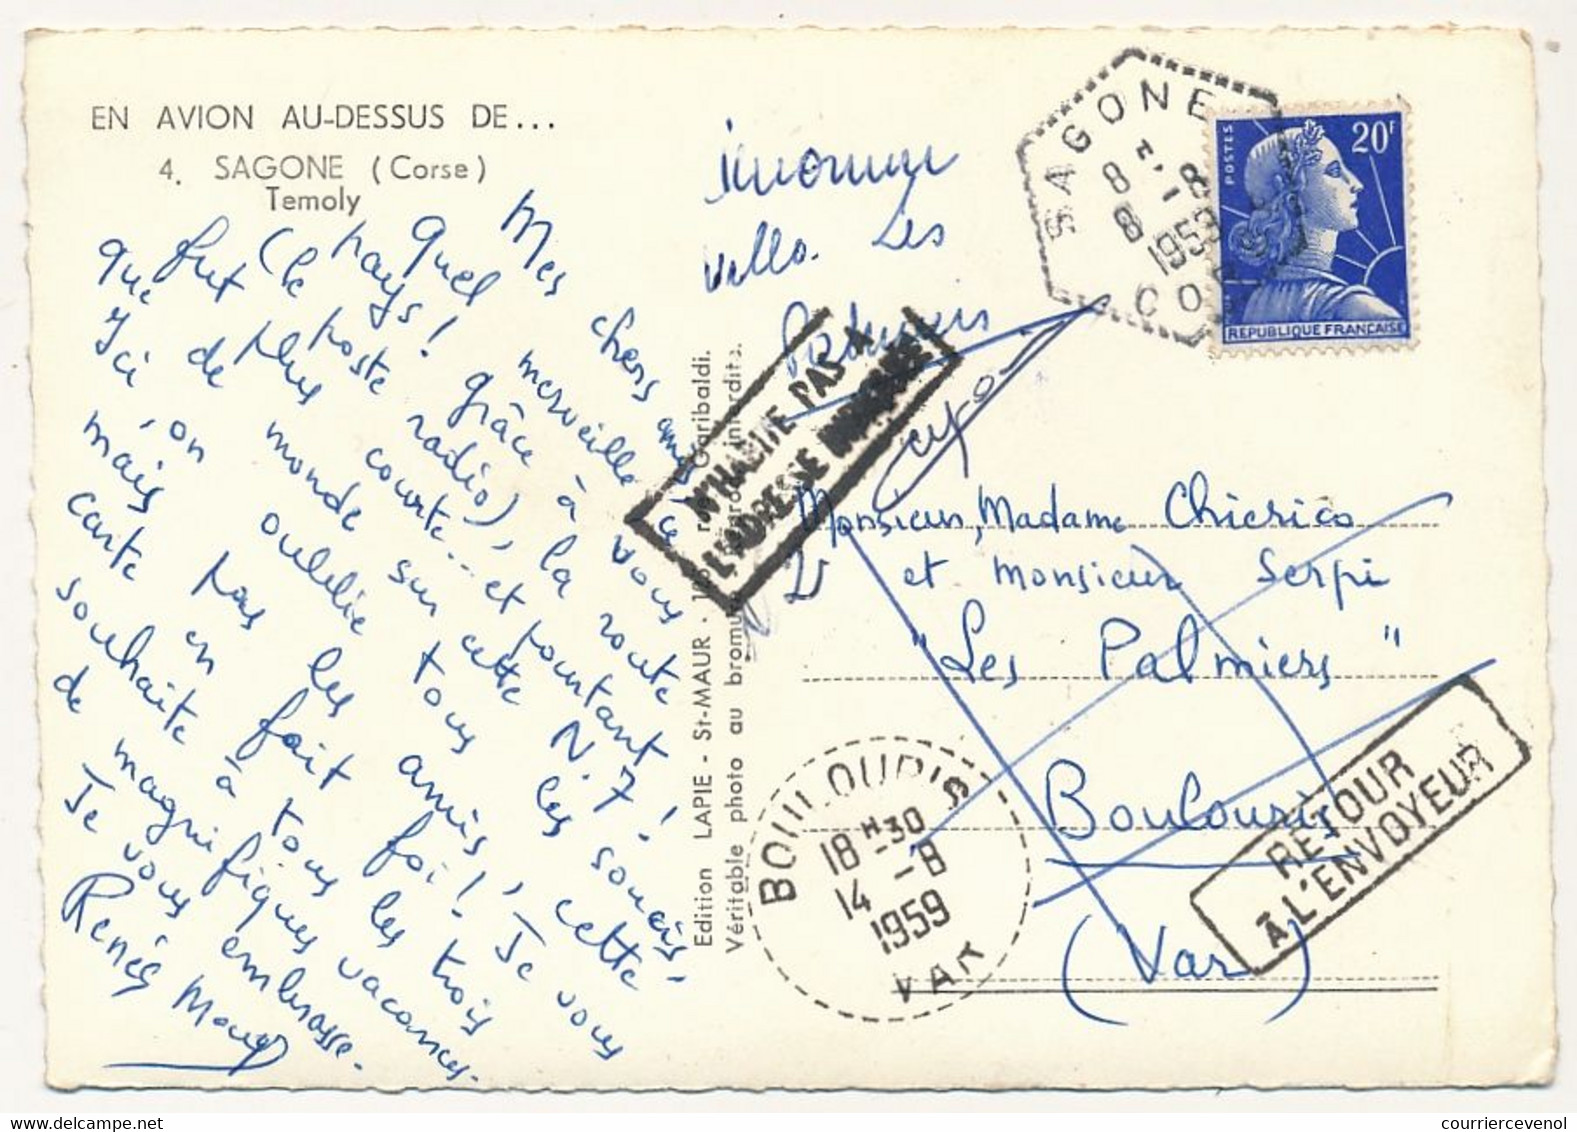 EN AVION AU-DESSUS DE...
4. SAGONE (Corse)
Temoly
Mes chers amis,
Quel merveilleux
pays! grâce à vous
(le poste radio), la route
fut plus courte... et pourtant
que de monde sur cette N.7!
Ici, on oublie tous les soucis
mais pas les amis, cette
carte en fait foi! Je vous
souhaite à tous les trois
de magnifiques vacances.
Je vous embrasse.
Renée
Edition LAPIE - St-MAUR - Garibaldi.
Véritable photo au bromure interdite.
inconnu
villa Les
Palmiers
N'HABITE PAS A
L'ADRESSE INDIQUEE
SAGONE
8 H
8 -8
1959
CORSE
POSTES
20F
REPUBLIQUE FRANÇAISE
Monsieur, Madame Chierico
et Monsieur Serpi
"Les Palmiers"
Boulouris
(Var)
BOULOURIS
18 H 30
14 -8
1959
VAR
RETOUR
À L'ENVOYEUR
www.delcampe.net
courriercevenol